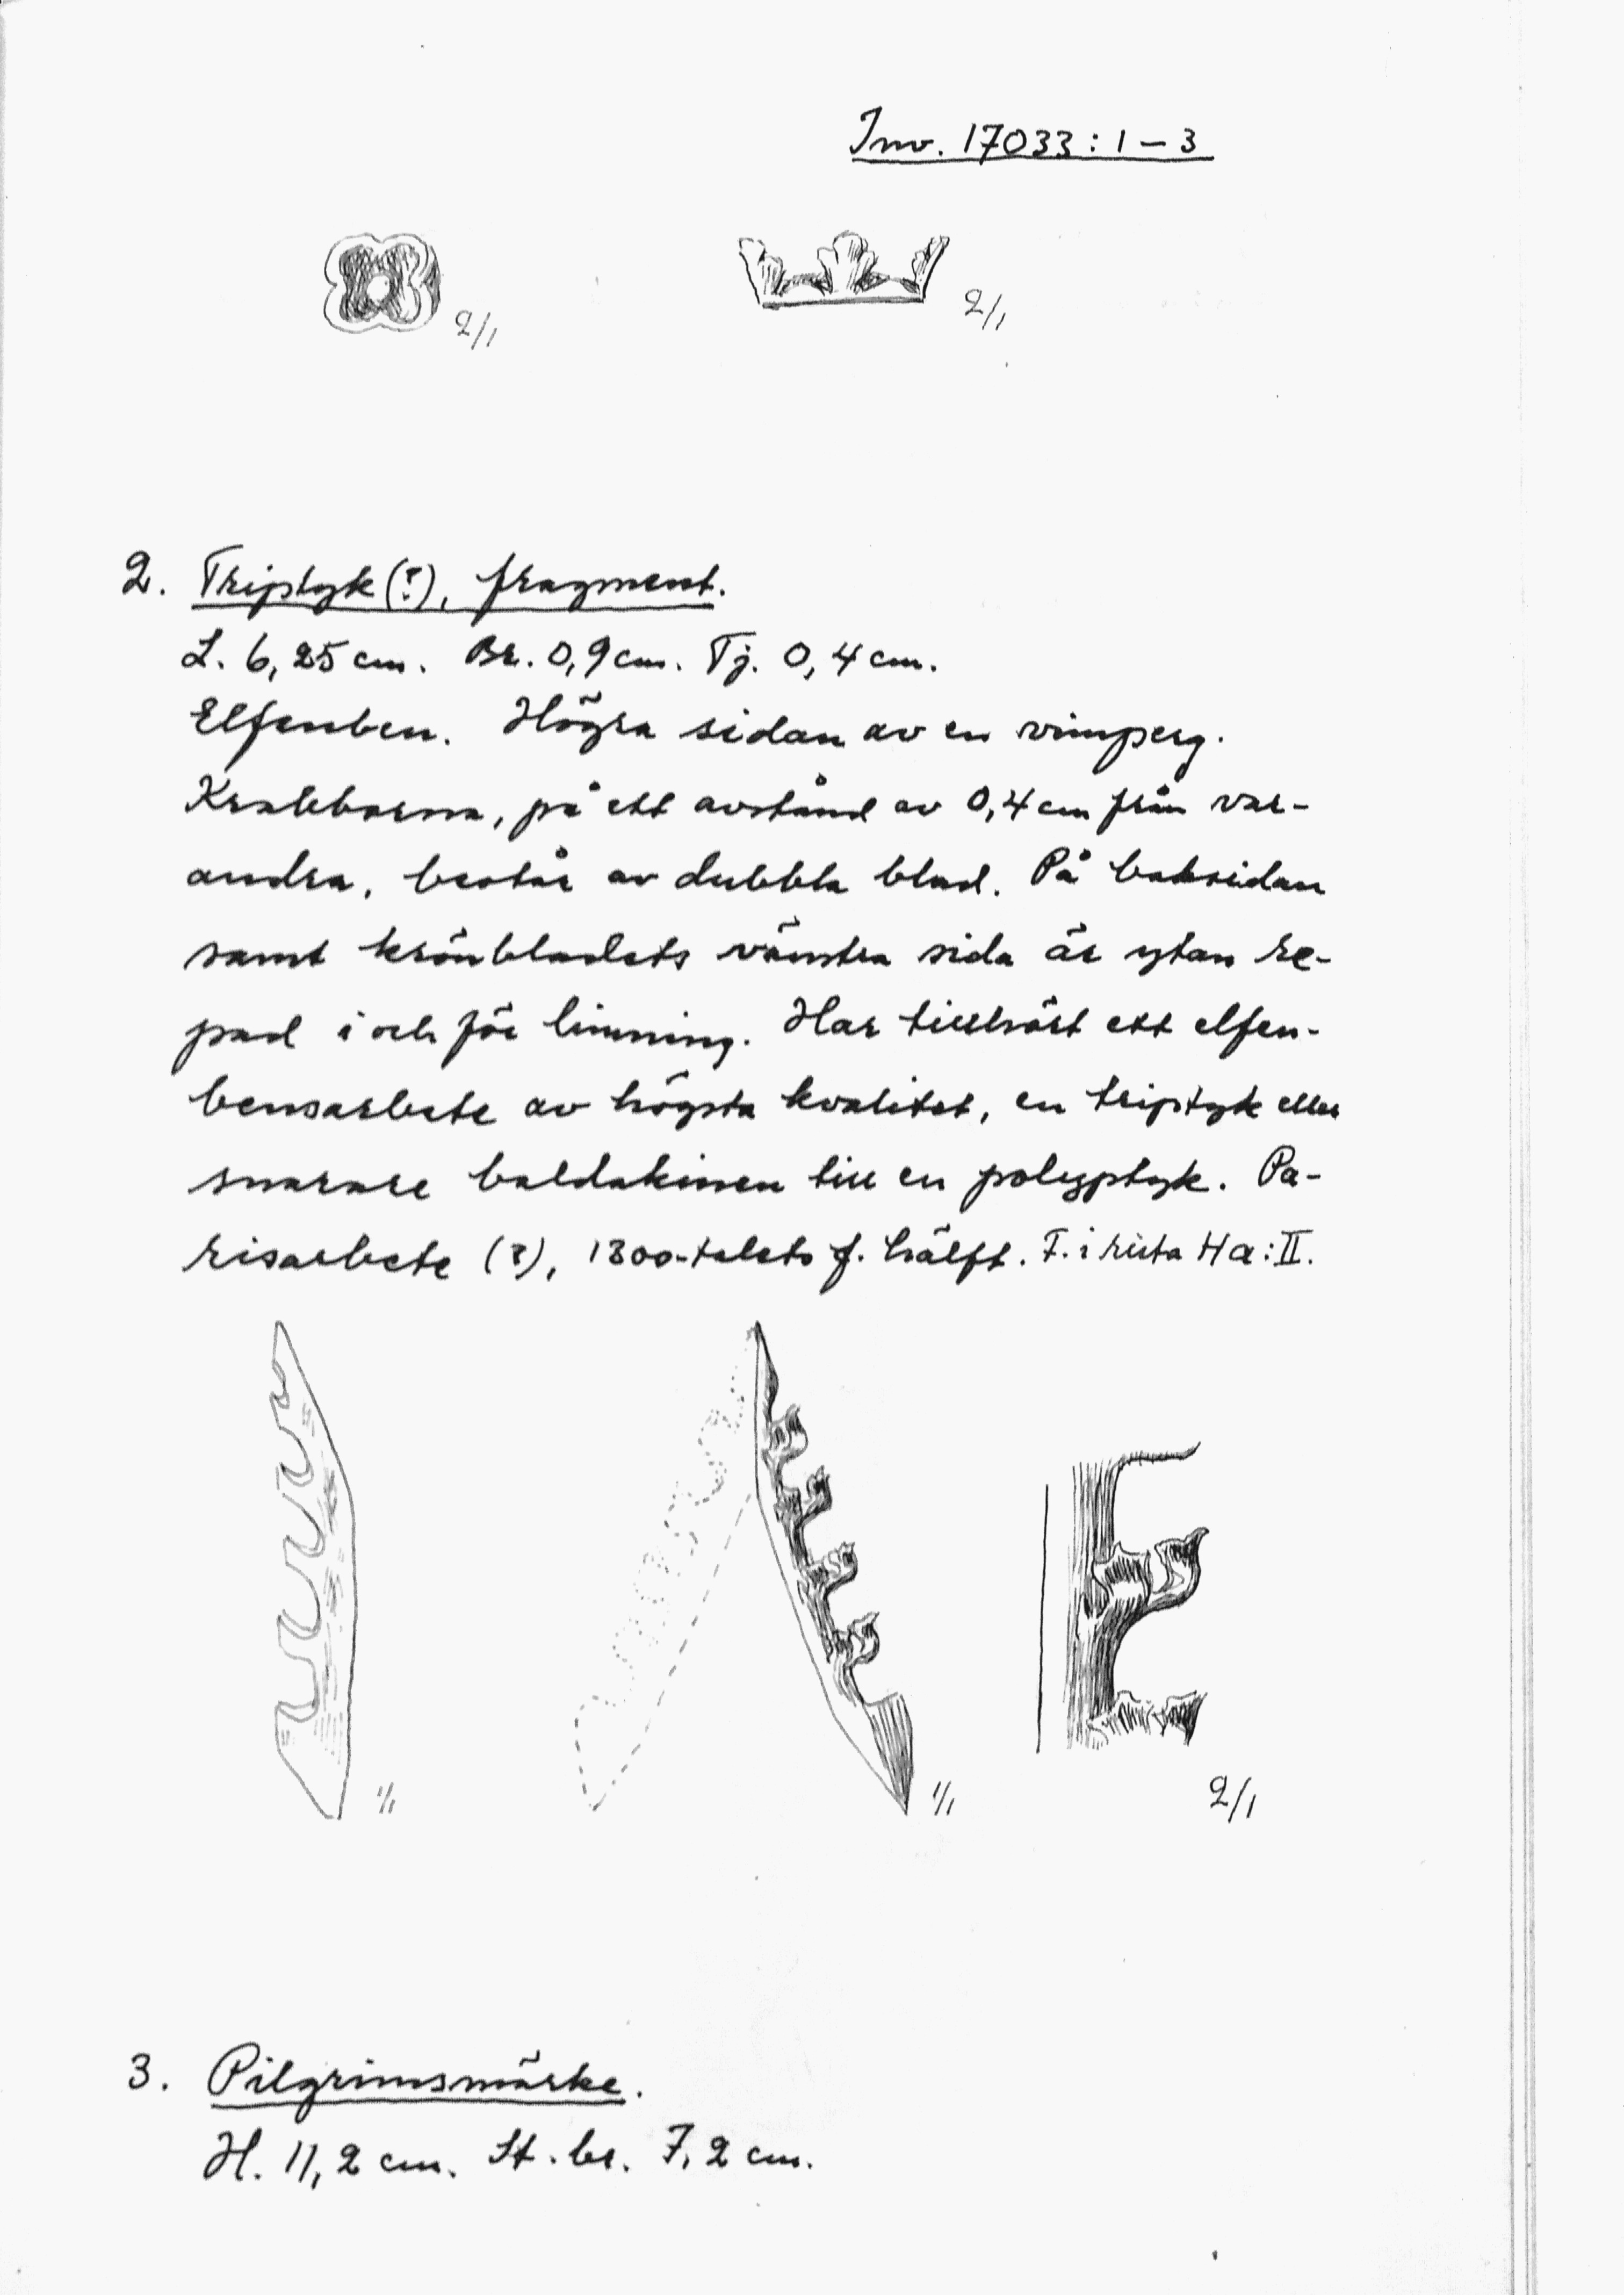 Inv. 17033:1-3
2/1
2/1
2. Triptyk(?), fragment.
L. 6,25 cm. Br. 0,9 cm. Tj. 0,4 cm.
Elfenben. Högra sidan av en vimperg.
Krabborna, på ett avstånd av 0,4 cm från var-
andra, består av dubbla blad. På baksidan
samt krönbladets vänstra sida är ytan re-
pad i och för limning. Har tillhört ett elfen-
bensarbete av högsta kvalitet, en triptyk eller
snarare baldakinen till en polyptyk. Pa-
risarbete (?), 1300-talets f. hälft. F. i ruta Ha:II.
1/1
1/1
2/1
3. Pilgrimsmärke.
H. 11,2 cm. St. br. 7,2 cm.